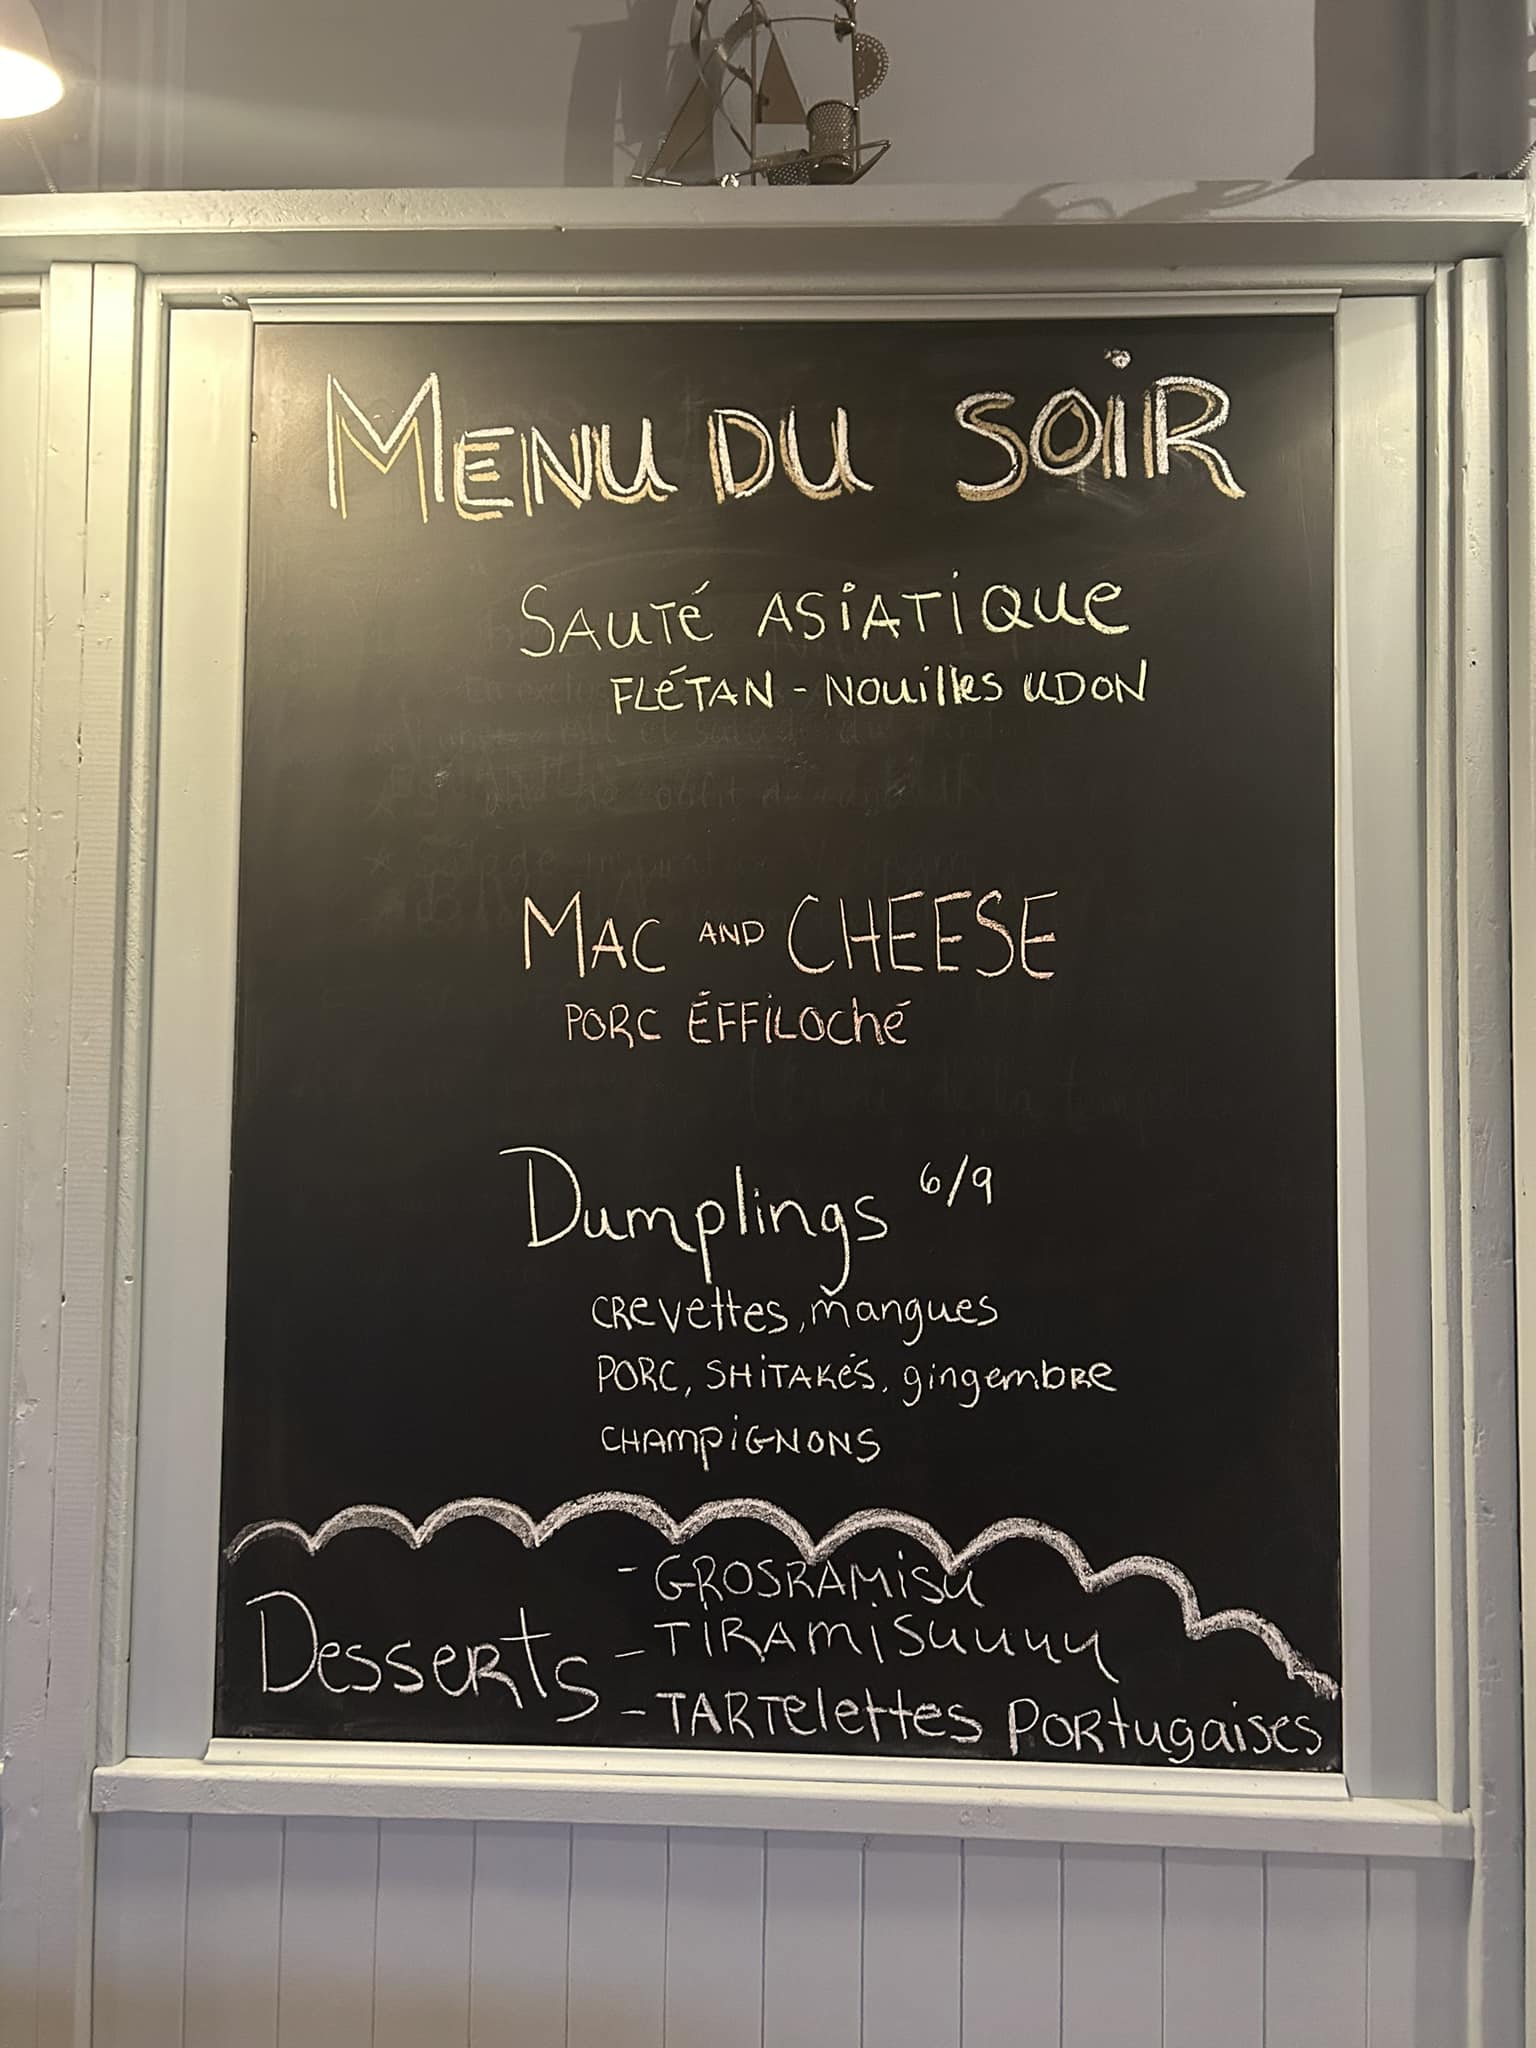 MENU DU SOIR
SAUTÉ ASIATIQUE
FLÉTAN - NOUILLES UDON
MAC AND CHEESE
PORC ÉFFILOCHÉ
Dumplings 6/9
CREVETTES, mangues
PORC, SHITAKÉS, gingembre
CHAMPIGNONS
- GROSRAMISU
Desserts - TIRAMISUUUUU
- TARTELETTES PORTUGAISES